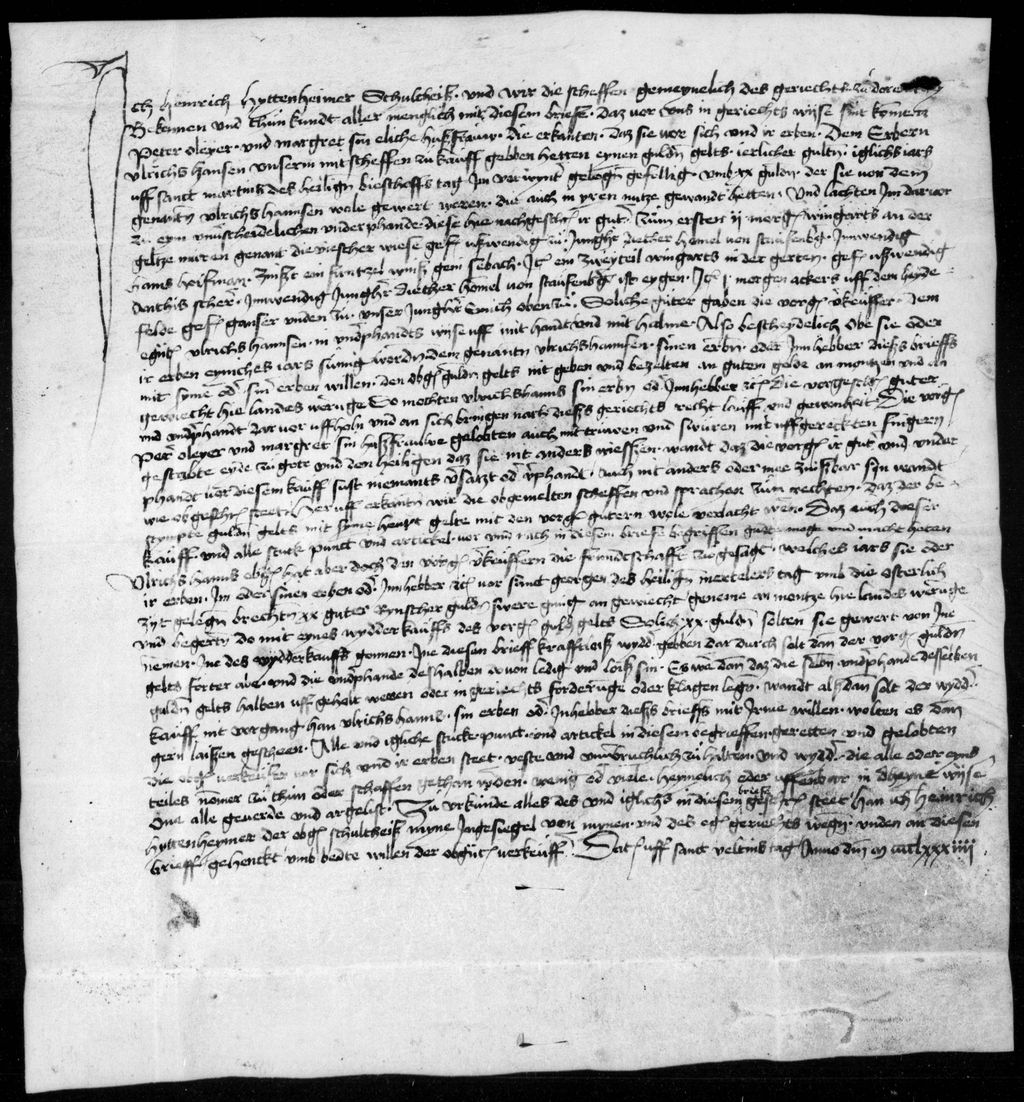 Ich Heinrich Hyttenheimer Schultheiß · und wir die scheffen gemeynelich des geriechts zu
Bekennen und thun kundt aller menglich mit diesem brieffe · daz vor uns in geriechts wijse sint komen
Peter oleyer · und margret sin eliche hußfrauw · die erkanten · daz sie vor sich und ir erben · Dem Erbern
Ulrichs hansen unserm mitscheffen zu kauff gebben hetten eynen guldn gelts · ierlicher gultn iglichs iars
uff sanct martins des heilign bieschoffs tag gelegn gefellig · umb xx guldn · der sie von dem
genantn ulrichs hannsen wole gewert weren · die auch in yren nutze gewandt hetten · Und lachten Im darvor
zu eym underphande diese hie nachgeschn ir gut · Zum ersten ij morgn wingarts an der
geltze muren genant die viescher wiese gefn ußwendig zu Junghr diether Homel von staufenbg · Inwendig
hans · Zinßt ein gein sebach · Itn ein zweyteil wingarts in der gerten · gefn ußwendig
Anthis scherr · Inwendig Junghr Diether Homel von staufenbg ist eygen · Itn j morgen ackers uff dem heyde
felde gefn ganser unden zu · unser Junghr Emich oben zu · Soliche guter gaben die vorgn vkeuffer · dem
egntn ulrichs hannsen · in undphandts wijse uff mit handt und mit halme · Also bescheydelich Obe sie oder
ir erben eyniches iars sumig wordn dem genantn ulrichs hannsen · sinen erbn · oder Innhebber diess brieffs
mit syme od sinr erben willen · den obgn guldn gelts nit geben und bezelten an gutem golde an montzen und an
gewiecht hie landes weruge So mochten ulrichs hanns sin erbn od Innhebber ztn Die vorgeschn guter
und undphandt dar vor uffholn und an sich bringen nach dieß geriechts recht lauff und gewonheit · Die vorgn
Peter oleyer und margret sin hußfrauwe gelobten auch mit truwen und swuren mit uffgereckten fingern
gestabte eyde zu gote und den heiligen daz sie nit anders wiesten · wandt daz die vorgn ir gut und under
phandt vor diesem kauff sust niemants vsatzt od vphandt · auch nit anders oder mee zinßbar syn wandt
wie obgeschn steet · Her uff erkantn wir die obgemelten scheffen und sprachen zum rechten · daz der be
stympte guldn gelts mit syme heupt gelte mit den vorgn gutern wole verlacht were · Daz auch dieser
kauff · und alle stuck punct und artickel · vor und nach in diesem brieffe begriffen gute moge und macht heten
Ulrichs hanns ebgn hat aber doch den vorgn vkeuffern die fruntschafft zu gesagt · welches iars sie oder
ir erben · Im oder sinen erben od Innhebber ztn vor sanct georgen des heilign mertelers tag umb die osterlich
zyt gelegn brechtn xx guter Rynscher guldn swere gnug an gewiecht geneme an montze hie landes weruge
und begertn do mit eynes wydderkauffs des vorgn guldn gelts Solich xx guldn solten sie gewert von Ine
niemen · Ine des wydderkauffs gonnen · Ine diesen brieff krafftloiß wydd gebben dar durch solt dan der vorgn guldn
gelts forter abe · und die undphande deshalben da von ledig und loiß sin · Es were dan daz die selbn undphande desselben
guldn gelts halben uff geholt weren oder in geriechts forderuge oder klagen legn · wandt alßdan solt der wydd
kauff nit vorgang han ulrichs hanns · sin erben od Inhebber dieß brieffs mit Irme willen · wolten es dan
gern laissen gescheen · Alle und igliche stucke punct · und artickel in diesem begrieffen · geretten und gelobten
die obgn verkeuffer vor sich und ir erben steet · veste und unverbruchlich zu halten · und wydd · die alle oder eyns
teiles nomer zu thun oder schaffen gethan wden · wenig od viele · heymelich oder uffenbar in dheyne wijse
One alle geuerde und argelist · Zu urkunde alles des und iglichs in diesem brieff geschn steet han ich Heinrich
Hyttenheimer der obgn schultheiß myne Ingesiegel von mynen · und des egn geriechts wegn · unden an diesen
brieff gehenckt umb beдte willen der obgntn verkeuff · Datn uff sanct veltins tag Anno dni m cccc lxxx iiii